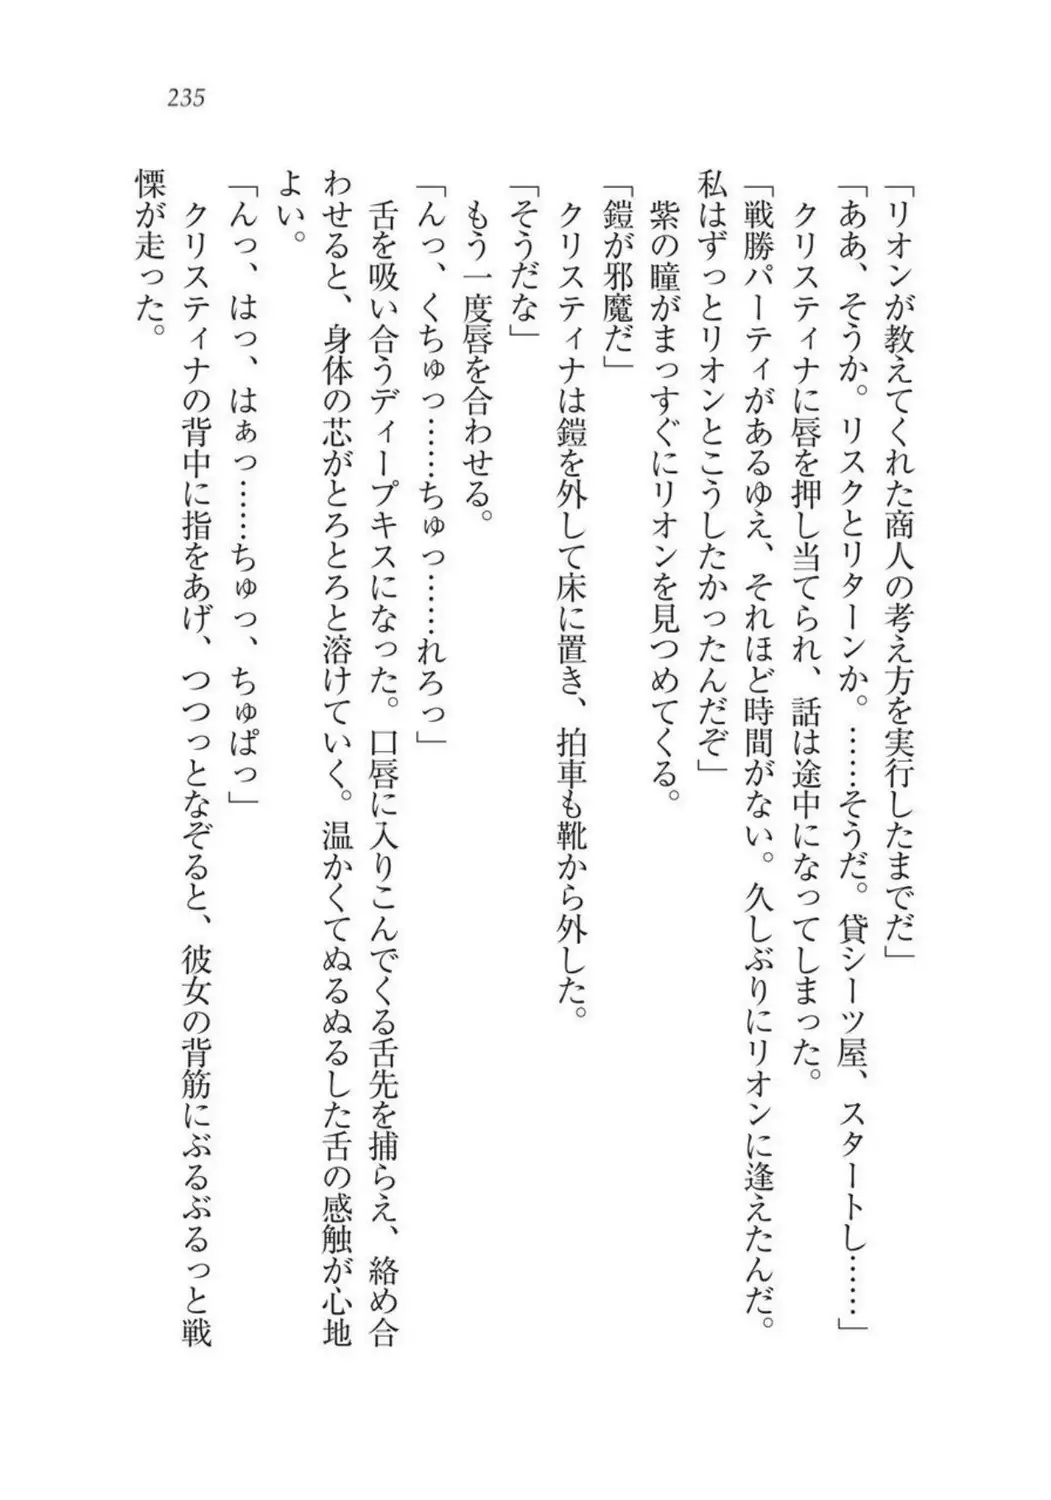 235
「リオンが教えてくれた商人の考え方を実行したまでだ」
「ああ、そうか。リスクとリターンか。……そうだ。貸シーツ屋、スタートし……」
クリスティナに唇を押し当てられ、話は途中になってしまった。
「戦勝パーティがあるゆえ、それほど時間がない。久しぶりにリオンに逢えたんだ。
私はずっとリオンとこうしたかったんだぞ」
紫の瞳がまっすぐにリオンを見つめてくる。
「鎧が邪魔だ」
クリスティナは鎧を外して床に置き、拍車も靴から外した。
「そうだな」
もう一度唇を合わせる。
「んっ、くちゅっ……ちゅっ……れろっ」
舌を吸い合うディープキスになった。口唇に入りこんでくる舌先を捕らえ、絡め合
わせると、身体の芯がとろとろと溶けていく。温かくてぬるぬるした舌の感触が心地
よい。
「んっ、はっ、はぁっ……ちゅっ、ちゅぱっ」
クリスティナの背中に指をあげ、つつっとなぞると、彼女の背筋にぶるぶるっと戦
慄が走った。